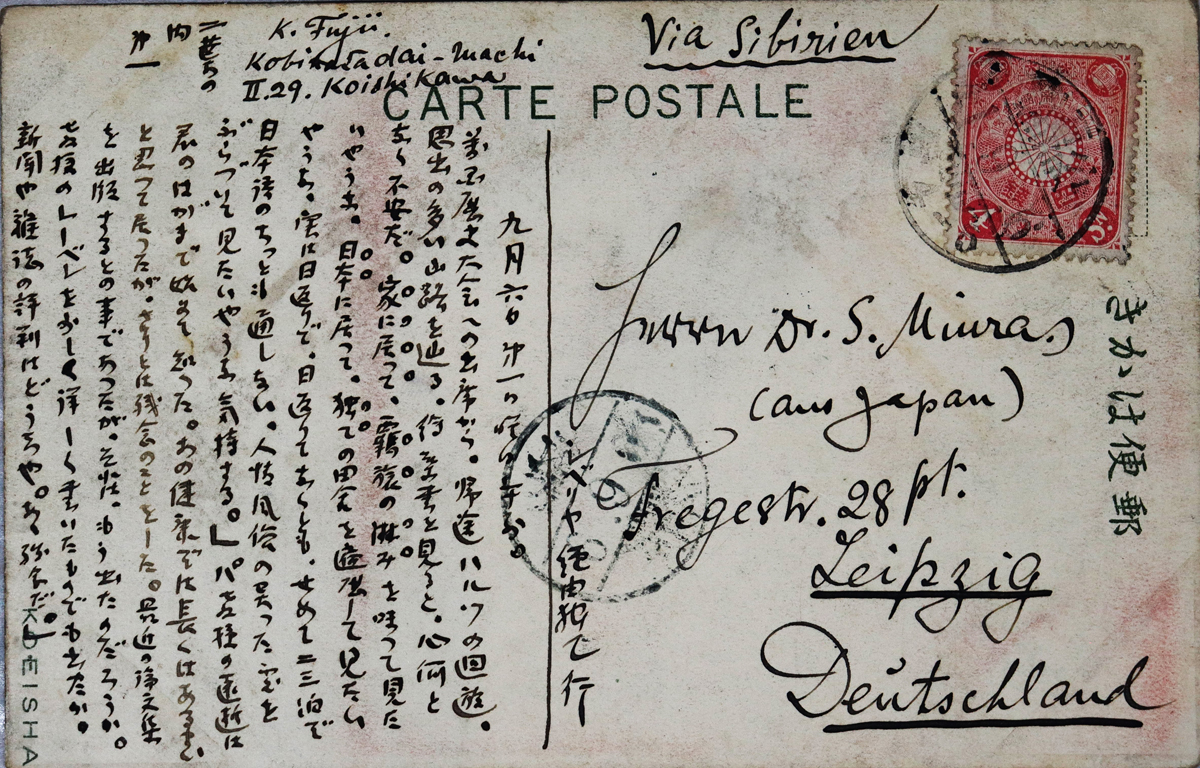 K. Fujii.
Kobinatadai-Machi
II.29. Koishikawa
Via Sibirien
CARTE POSTALE
きかは便郵
4 Sn.
Herrn Dr. S. Miura
(aus Japan)
Fregestr. 28 pt.
Leipzig
Deutschland
シベリヤ経由独で行
九月六日 第一の
万国歴史大会への出席から。帰途ハルツの回遊。
思出の多い山路を辿る。待 書を見ると、心何と
なく不安だ。家に居って、羇旅の淋みを味って見た
いやうな。日本に居って。独での田舎を遍歴して見たい
やうな。実は日返りで、日返りでなくとも、せめて二三泊で
日本語のちっとも通じない。人情風俗の異った処を
ぶらついて見たいやうな気持する。」パ 様の逝は
君のはがきで始めて知った。あの健康では長くはあるまい
と思って居ったが。さりとは残念のことをした。最近の論文集
を出版するとの事であったが。其 もう出たのだろうか。
様のレーベンを少しく詳しく書いたものでも出たか。
新聞や雑誌の評判はどうぢや。
KJDEISHA